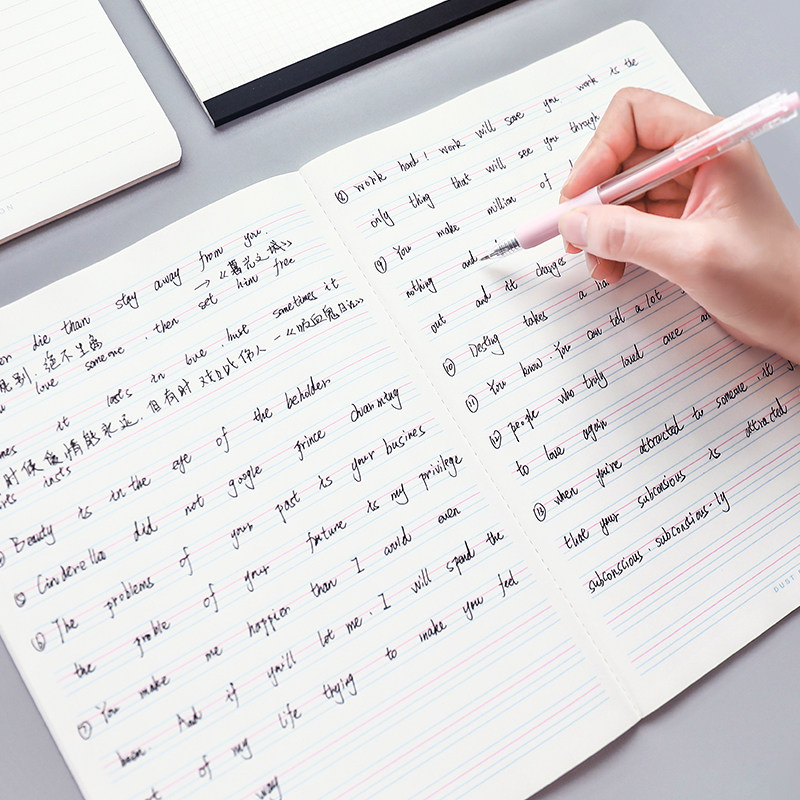 die than stay away from you.
规则,绝不生离 →《暮光之城》
love someone, then set him free
times it lasts in love, but sometimes it
时候爱情能永远,但有时对彼伤人 -《吸血鬼日记》
Beauty is in the eye of the beholder
Cinderella did not google prince charming
⑥ The problems of your past is your business
the proble of your future is my privilege
⑦ You make me happier than I could even
And if you'll let me, I will spend the
of my life trying to make you feel
way
⑧ work hard! work will save you work is the
only thing that will see you through
⑨ You make million of
nothing and
out and it changes
⑩ Destiny takes a
⑪ You know. You can tell a lot
⑫ people who truly loved once
to love again
⑬ when you're attracted to someone, it
that your subconsious is attracted
subconscious, subconscious-ly
DUST
ON